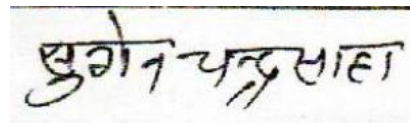 सुगेन चन्द्र साहा